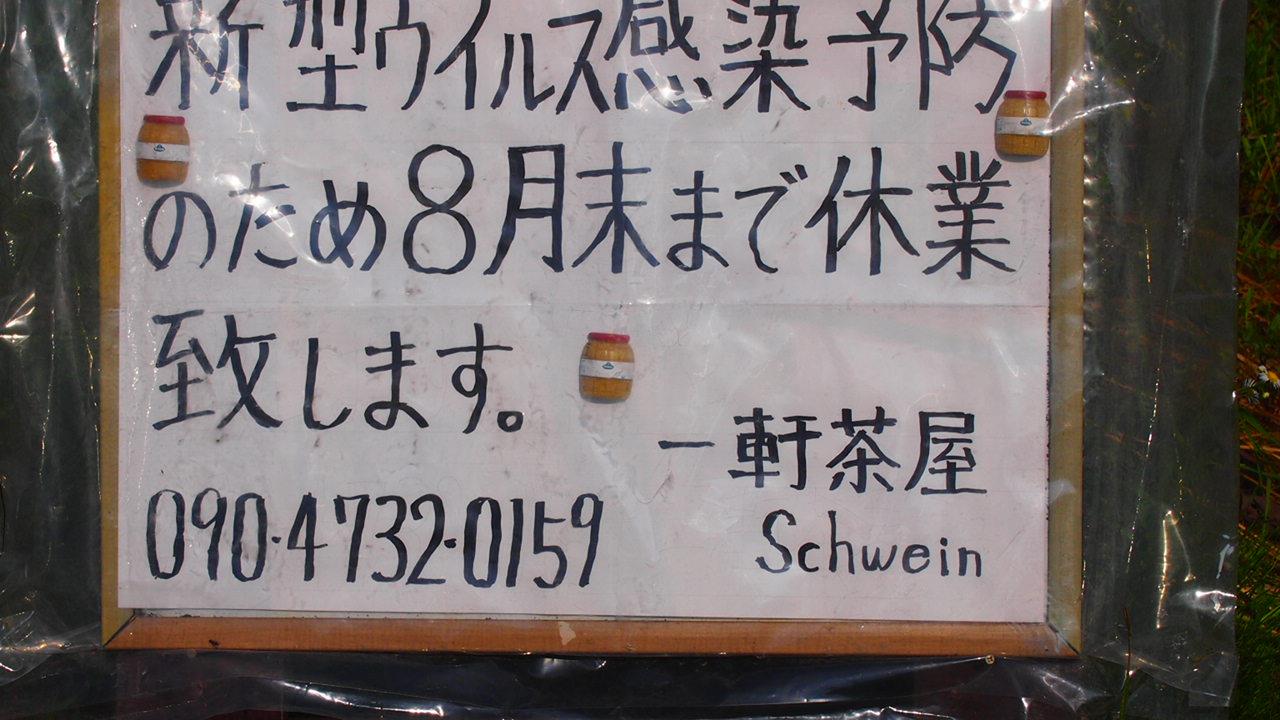 新型ウイルス感染予防
のため8月末まで休業
致します。
一軒茶屋
090-4732-0159
Schwein